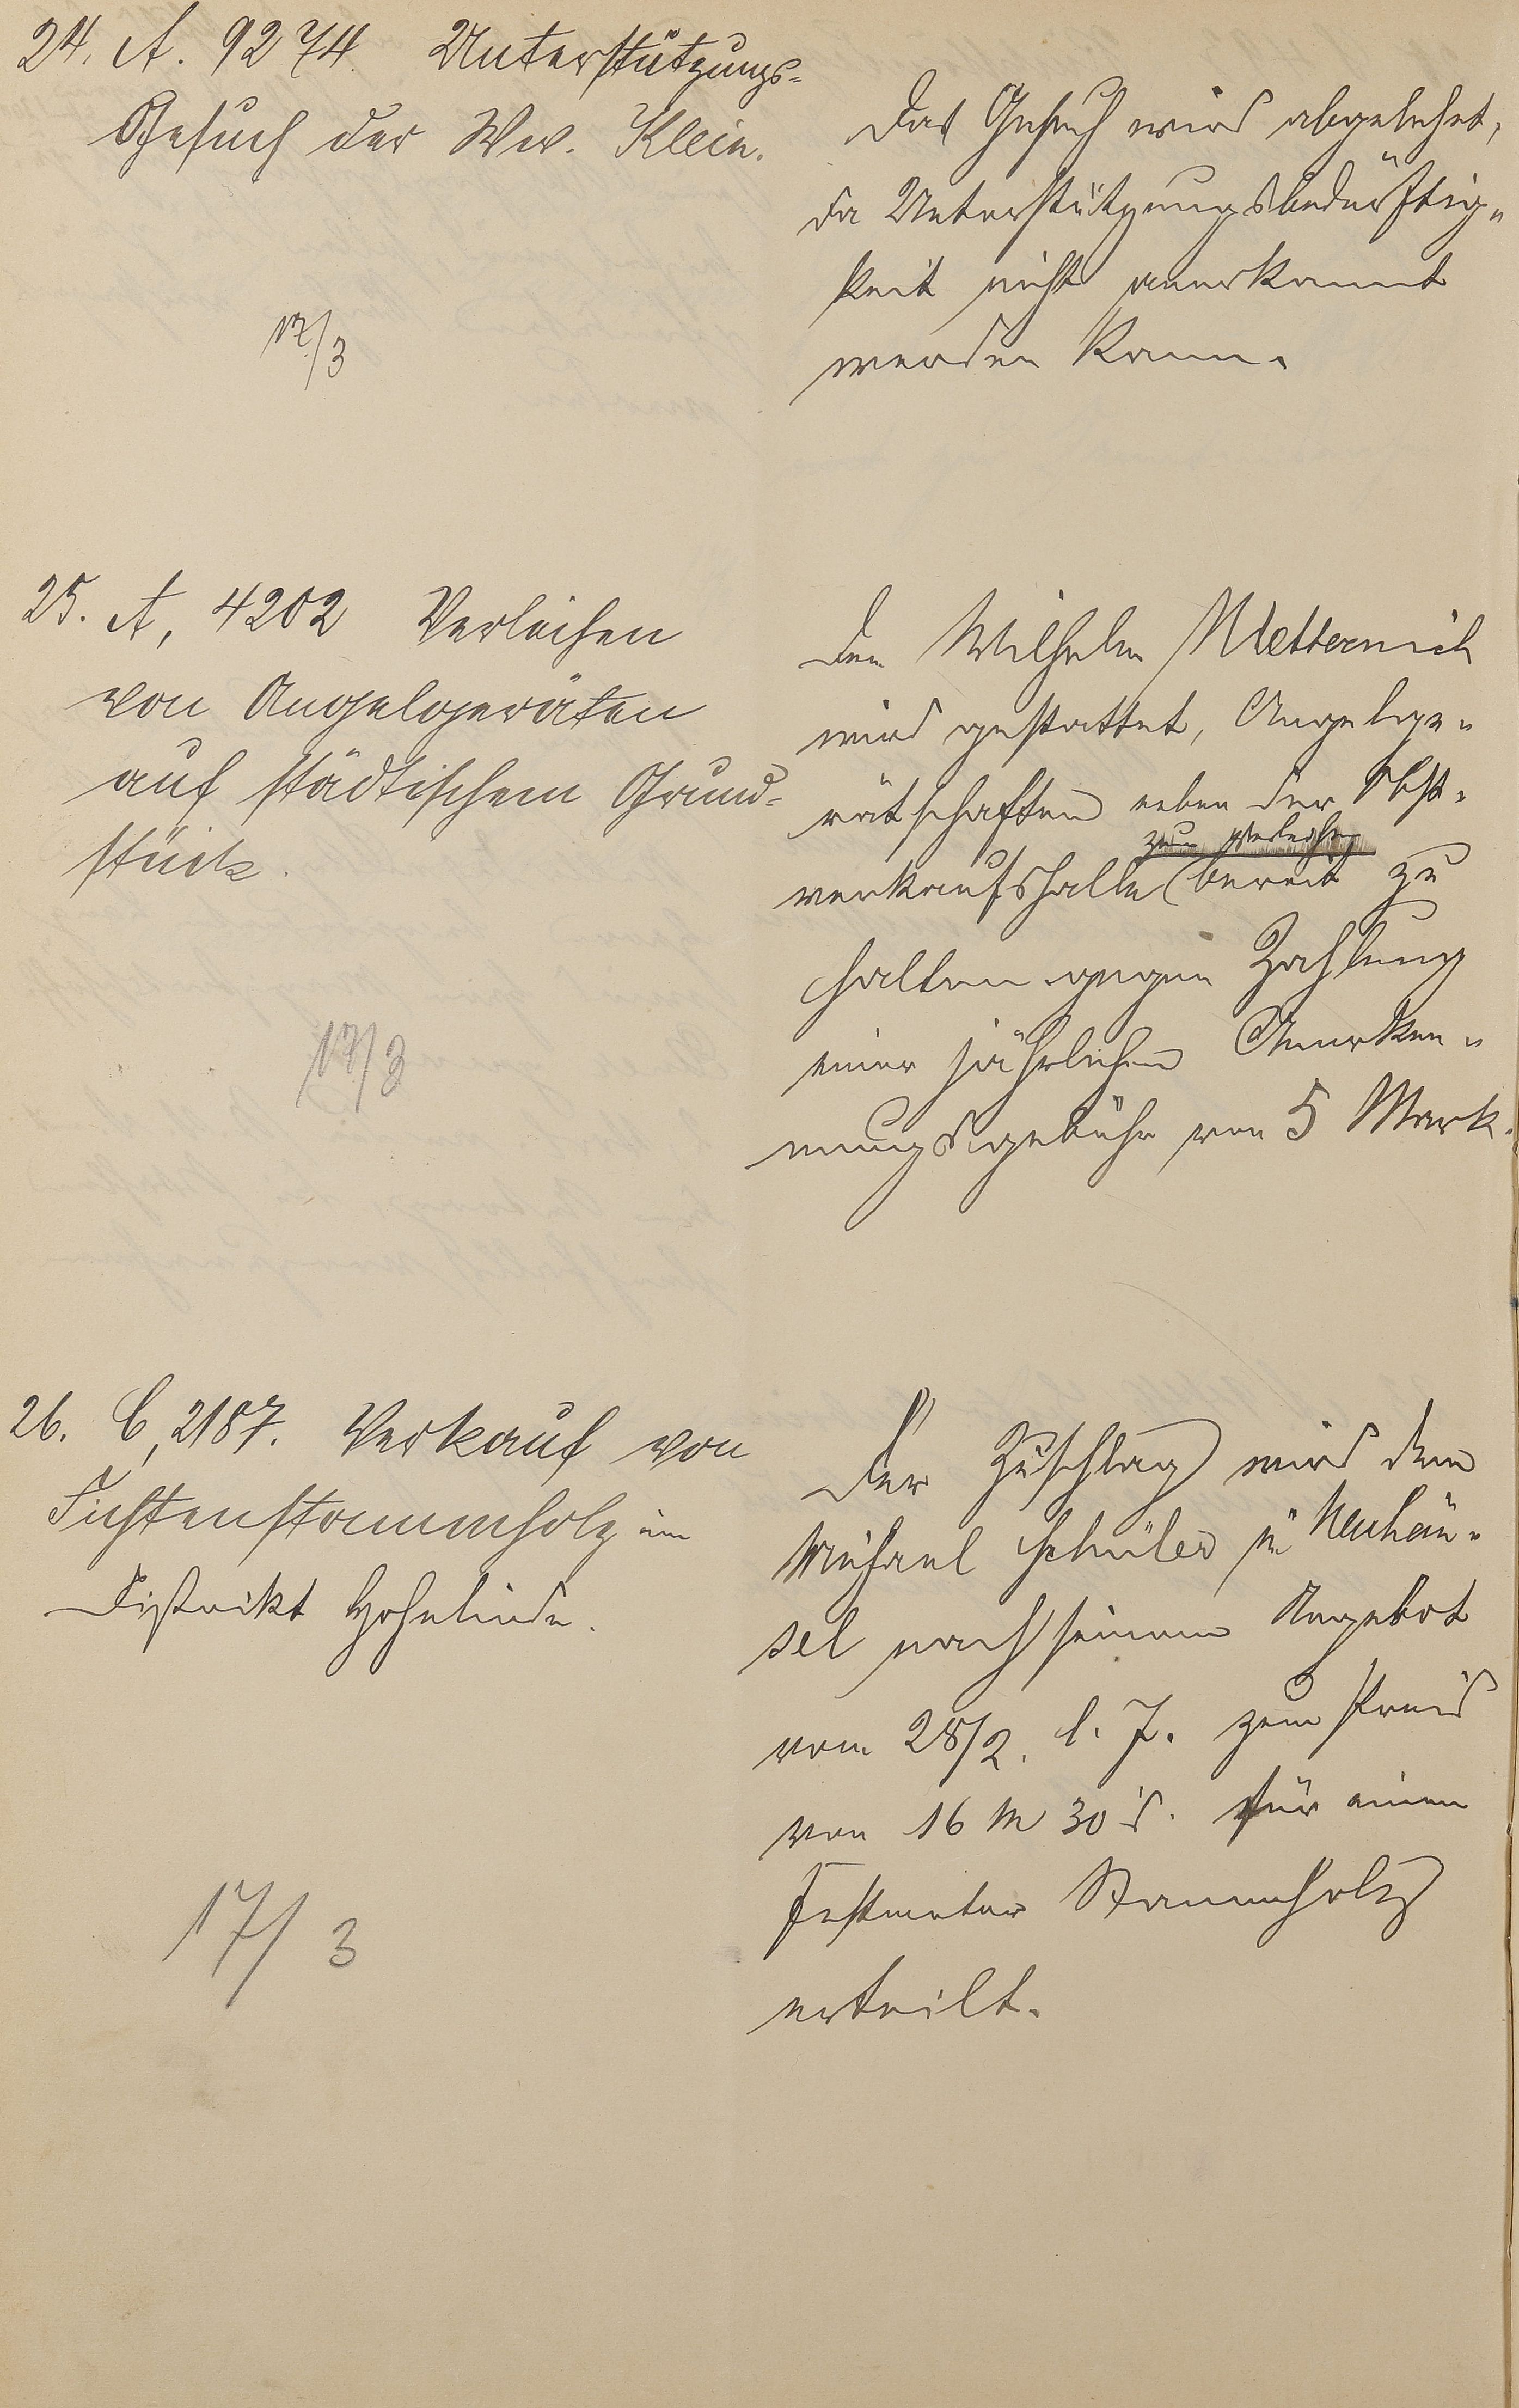 24. A. 9274. Unterstützungs-
Gesuch der Ww. Klein.
17/3
Das Gesuch wird abgelehnt,
da Unterstützungsbedürftig-
keit nicht anerkannt
werden kann.
25. A, 4202 Verleihen
von Angelgeräten
auf städtischem Grund-
stück.
17/3
Dem Wilhelm Metternich
wird gestattet, Angelge-
rätschaften neben der Obst-
zum Verleihen
verkaufshalle (bereit zu
halten gegen Zahlung
einer jährlichen Anerken-
nungsgebühr von 5 Mark.
26. C, 2187. Verkauf von
Fichtenstammholz im
Distrikt Hohelinde.
17/3
Der Zuschlag wird dem
Michael Schüler zu Neuhäu-
sel nach seinem Angebot
vom 28/2. l. J. zum Preis
von 16 M 30 d. für einen
Festmeter Stammholz
erteilt.